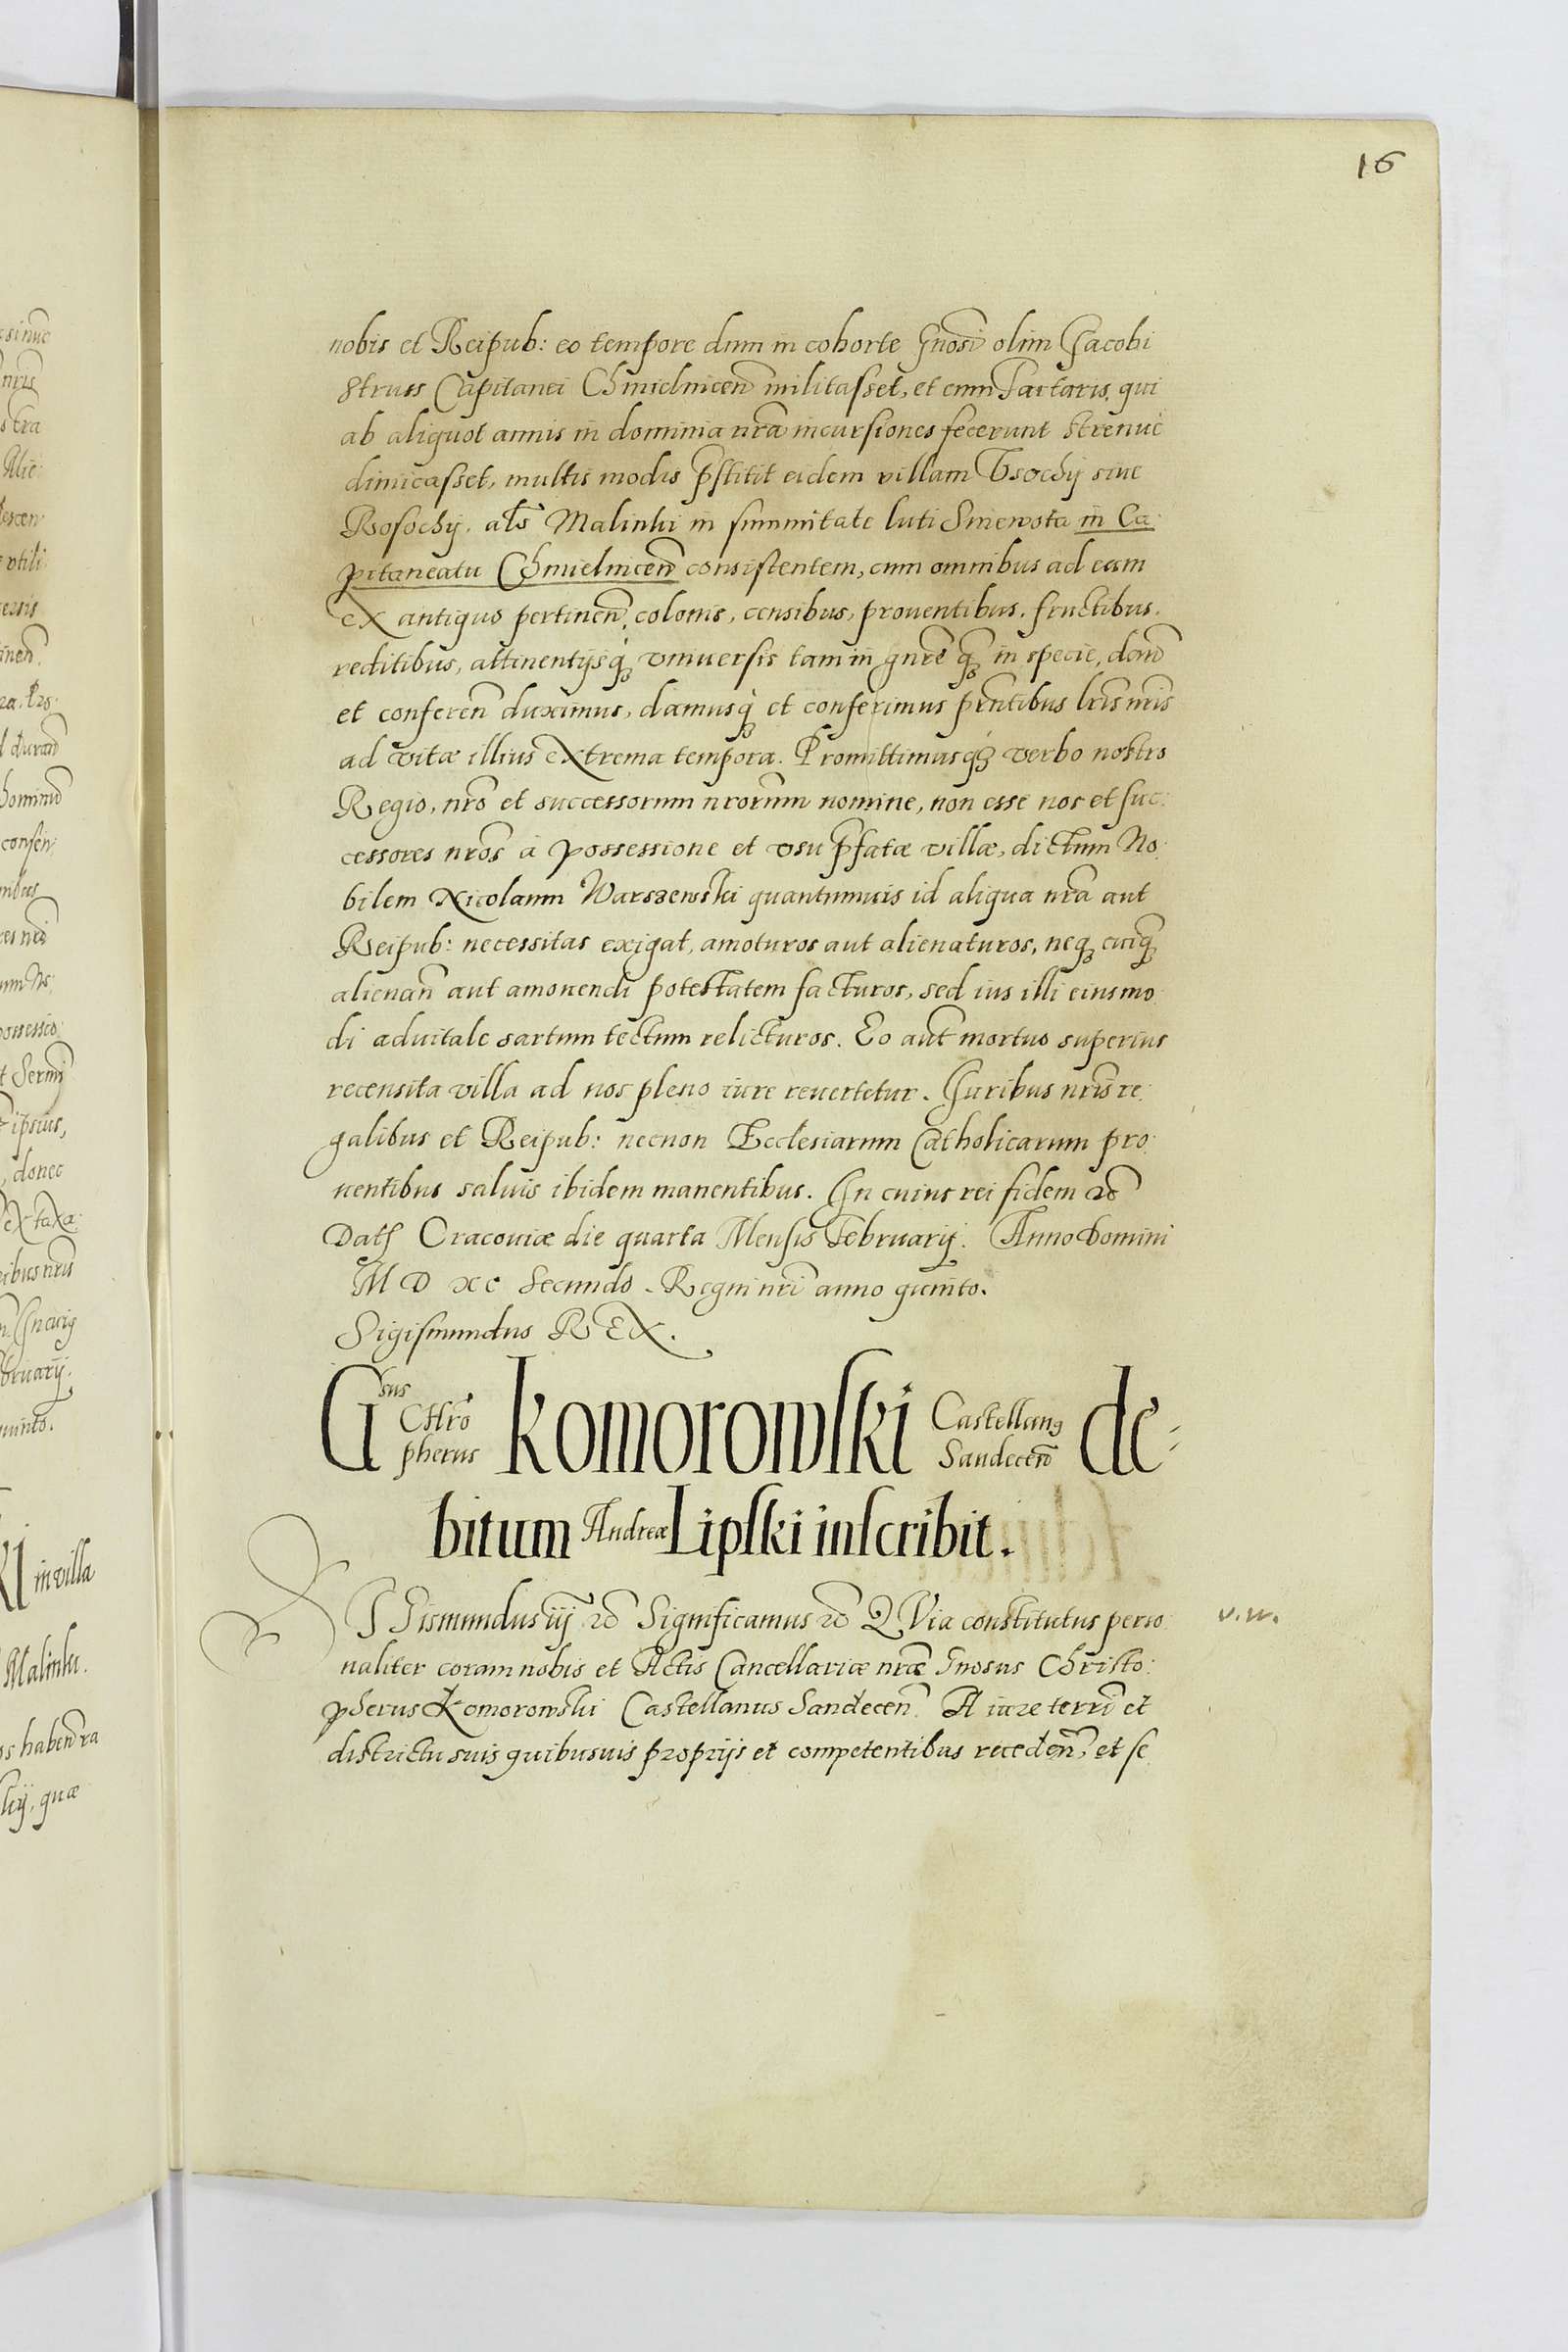 16
nobis et Reipub: eo tempore dum in cohorte Gnosi olim Jacobi
Struss Capitanei Chmielnicen militasset, et cum Tartaris, qui
ab aliquot annis in dominia nra incursiones fecerunt strenue
dimicasset, multis modis pstitit eidem villam Tsochij siue
Rosochij, als Malinki in summitate luti Sniewota in Ca:
pitaneatu Chmielnicen consistentem, cum omnibus ad eam
ex antiquo pertinen, colonis, censibus, prouentibus, fructibus,
reditibus, attinentijsq; vniuersis tam in gnre q; in specie, dand
et conferen duximus, damusq; et conferimus prntibus lris nris
ad vitæ illius extrema tempora. Promittimusq; verbo nostro
Regio, nro et successorum nrorum nomine, non esse nos et suc:
cessores nros à possessione et vsu pfatæ villæ, dictum No:
bilem Nicolaum Warszewski quantumuis id aliqua nra aut
Reipub: necessitas exigat, amoturos aut alienaturos, neq; cuiq;
alienan aut amouendi potestatem facturos, sed ius illi eiusmo
di aduitale sartum tectum relicturos. Eo aut mortuo superius
recensita villa ad nos pleno iure reuertetur. Juribus nris re:
galibus et Reipub: necnon Ecclesiarum Catholicarum pro:
uentibus saluis ibidem manentibus. In cuius rei fidem &c
Dat Cracouiæ die quarta Mensis Februarij. Anno Domini
M D XC Secundo. Regni nri anno quinto.
Sigismundus REX.
Gsus Chro pherus Komorowski Castellanus Sandecen de:
bitum Andreæ Lipski inscribit.
SIGismundus iij &c Significamus &c Quia constitutus perso
naliter coram nobis et Actis Cancellariæ nræ Gnosus Christo:
pherus Komorowski Castellanus Sandecen. A iure terri et
districtu suis quibusuis proprijs et competentibus receden, et se
v. w.